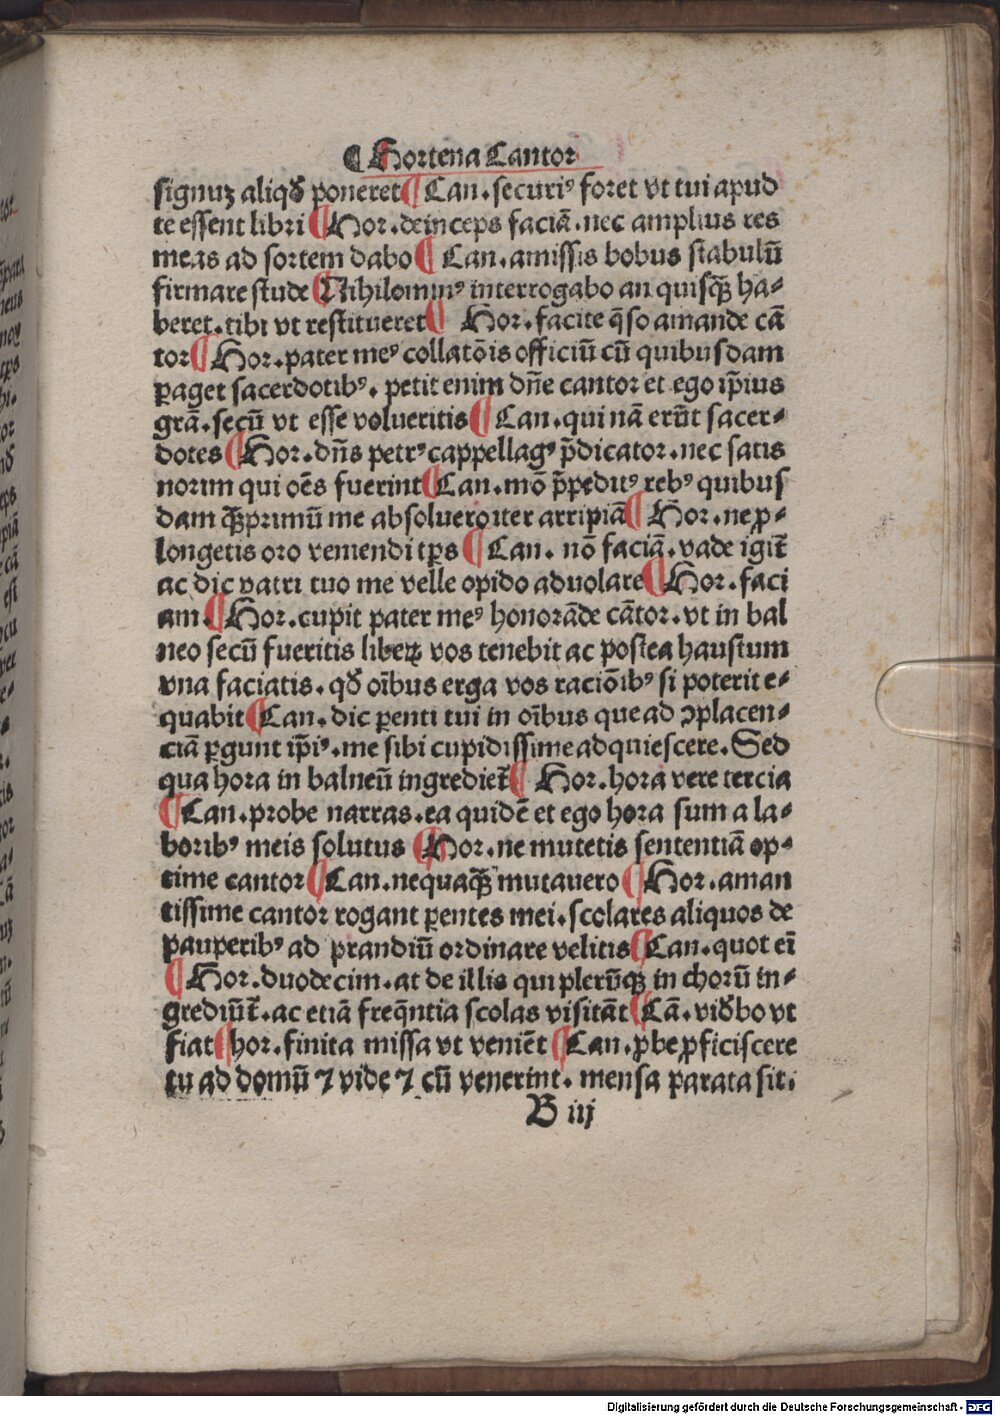 ¶ Hortena Cantor
signuʒ aliqđ poneret ¶ Can. securiꝰ foret vt tui apud
te essent libri ¶ Hor. deinceps faciā. nec amplius res
meas ad sortem dabo ¶ Can. amissis bobus stabulū
firmare stude ¶ Nihilominꝰ interrogabo an quisq̄ʒ ha⸗
beret. tibi vt restitueret ¶ Hor. facite q̄so amande cā
tor ¶ Hor. pater meꝰ collatōis officiū cū quibusdam
ꝑaget sacerdotibꝰ. petit enim dn̄e cantor et ego ip̄ius
grā. secū vt esse volueritis ¶ Can. qui nā erūt sacer⸗
dotes ¶ Hor. dn̄s petrꝰ cappellagꝰ p̄dicator. nec satis
norim qui oēs fuerint ¶ Can. mō p̄peditꝰ rebꝰ quibus
dam q̄ʒprimū me absoluero iter arripiā ¶ Hor. ne ꝓ⸗
longetis oro veniendi tꝑs ¶ Can. nō faciā. vade igit̄
ac dic patri tuo me velle opido aduolare ¶ Hor. faci
am ¶ Hor. cupit pater meꝰ honorāde cātor. vt in bal
neo secū fueritis libeꝝ vos tenebit ac postea haustum
vna faciatis. qđ oībus erga vos raciōibꝰ si poterit e⸗
quabit ¶ Can. dic ꝑenti tui in oībus que ad ꝯplacen⸗
ciā ꝑgunt ip̄iꝰ. me sibi cupidissime adquiescere. Sed
qua hora in balneū ingrediet̄ ¶ Hor. hora vere tercia
¶ Can. probe narras. ea quidē et ego hora sum a la⸗
boribꝰ meis solutus ¶ Hor. ne mutetis sententiā op⸗
time cantor ¶ Can. nequaq̄ʒ mutauero ¶ Hor. aman
tissime cantor rogant ꝑentes mei. scolares aliquos de
pauperibꝰ ad prandiū ordinare velitis ¶ Can. quot eī
¶ Hor. duodecim. at de illis qui plerūqʒ in chorū in⸗
grediūt̄. ac etiā freq̄ntia scolas visitāt ¶ Cā. viđbo vt
fiat ¶ hor. finita missa vt veniēt ¶ Can. ꝓbe ꝓficiscere
tu ad domū ⁊ vide ⁊ cū venerint. mensa parata sit.
B iij
Digitalisierung gefördert durch die Deutsche Forschungsgemeinschaft - DFG